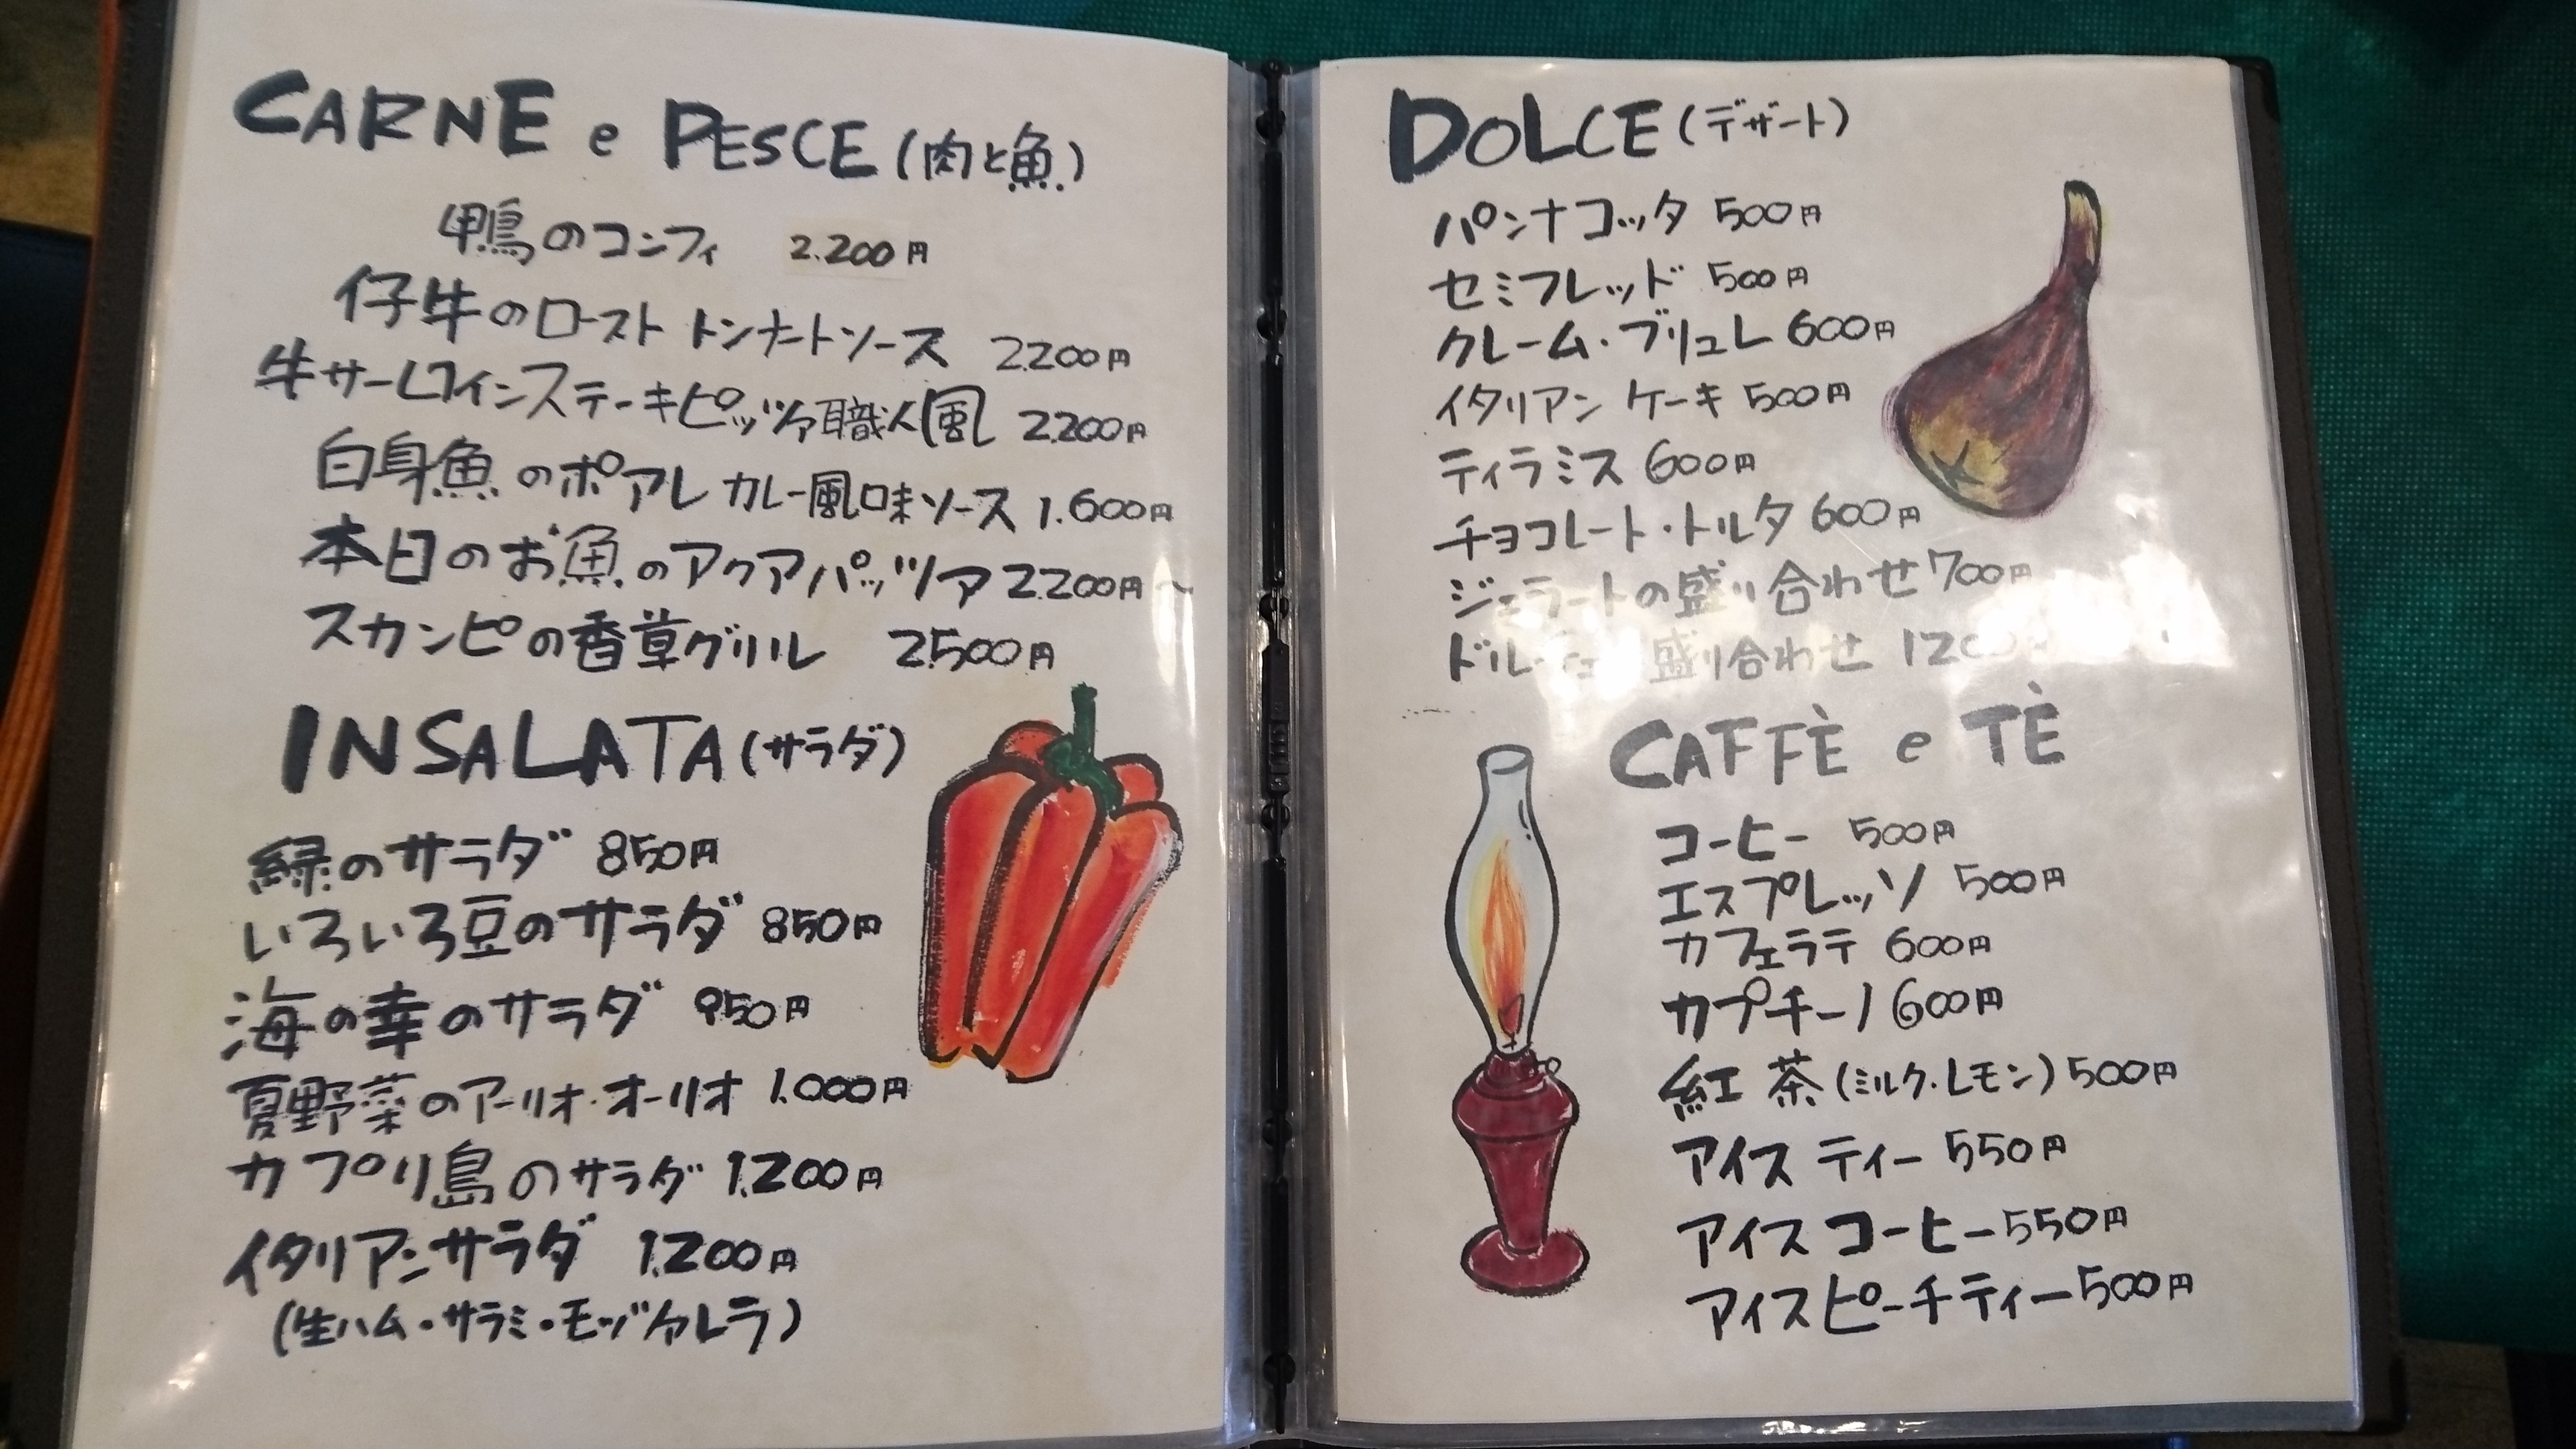 CARNE e PESCE (肉と魚)
鴨のコンフィ 2.200円
仔牛のロースト トンナートソース 2.200円
牛サーロインステーキピッツァ職人風 2.200円
白身魚のポアレ カレー風味ソース 1.600円
本日のお魚のアクアパッツァ 2.200円~
スカンピの香草グリル 2.500円
INSALATA (サラダ)
緑のサラダ 850円
いろいろ豆のサラダ 850円
海の幸のサラダ 950円
夏野菜のアーリオ・オーリオ 1.000円
カプリ島のサラダ 1.200円
イタリアンサラダ 1.200円
(生ハム・サラミ・モッヅァレラ)
DOLCE (デザート)
パンナコッタ 500円
セミフレッド 500円
クレーム・ブリュレ 600円
イタリアン ケーキ 500円
ティラミス 600円
チョコレート・トルタ 600円
ジェラートの盛り合わせ 700円
ドルチェ 盛り合わせ 1200
CAFFÈ e TÈ
コーヒー 500円
エスプレッソ 500円
カフェラテ 600円
カプチーノ 600円
紅茶 (ミルク・レモン) 500円
アイス ティー 550円
アイス コーヒー 550円
アイスピーチティー 500円